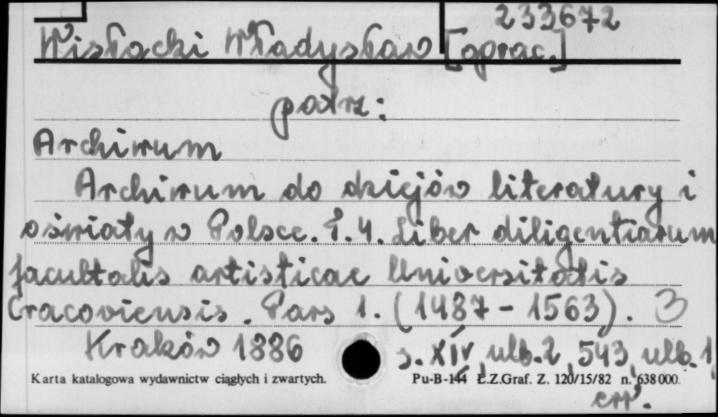 233672
Wisłocki Władysław [oprac.]
patrz:
Archiwum
Archiwum do dziejów literatury i
oświaty w Polsce. T.4. Liber diligentiarum
facultatis artisticae Universitatis
Cracoviensis. Pars 1. (1487-1563). 3
Kraków 1886 s. XIV, ulb. 2, 543, ulb. 1,
Karta katalogowa wydawnictw ciągłych i zwartych. Pu-B-144 Ł.Z.Graf. Z. 120/15/82 n. 638000.
err.